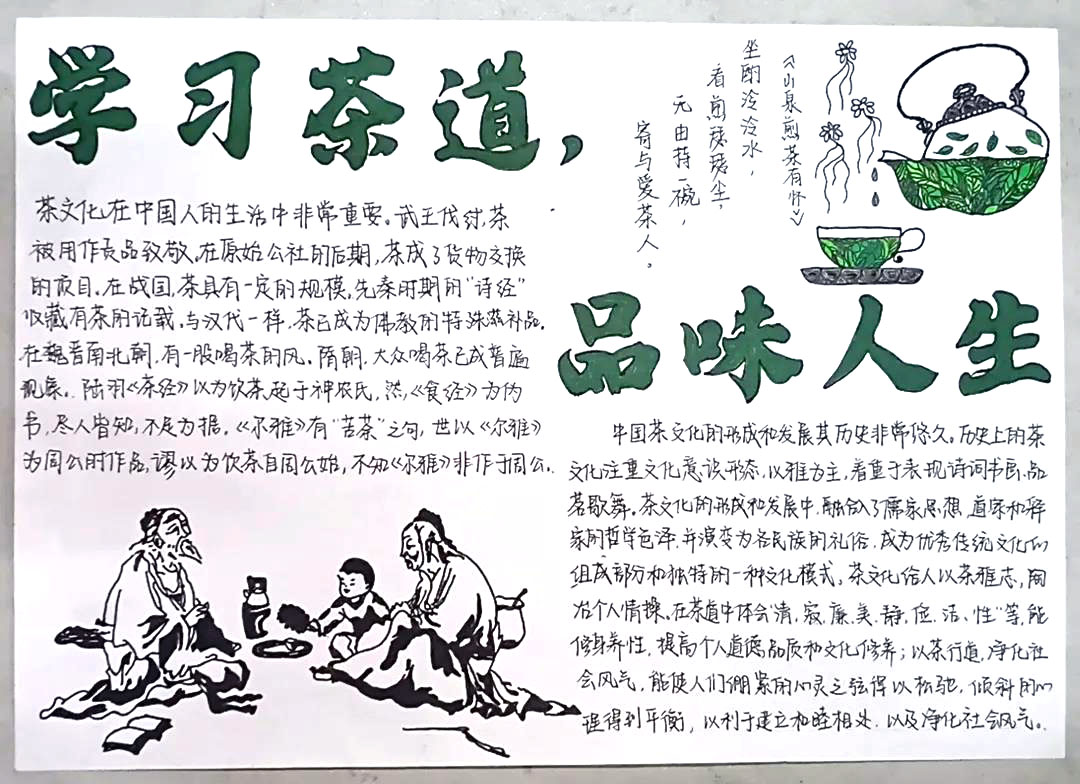 学习茶道，
《山泉煎茶有怀》
坐酌泠泠水，
看煎瑟瑟尘，
无由持一碗，
寄与爱茶人。
茶文化在中国人的生活中非常重要。武王伐纣，茶
被用作贡品致敬。在原始公社的后期，茶成了货物交换
的项目。在战国，茶具有一定的规模，先秦时期的“诗经”
收藏有茶的记载。与汉代一样，茶已成为佛教的特殊滋补品。
在魏晋南北朝，有一股喝茶的风。隋朝，大众喝茶已成普遍
现象。陆羽《茶经》以为饮茶起于神农氏，然，《食经》为伪
书，尽人皆知，不足为据。《尔雅》有“苦茶”之句，世以《尔雅》
为周公时作品，谬以为饮茶自周公始，不知《尔雅》非作于周公。
品味人生
中国茶文化的形成和发展其历史非常悠久。历史上的茶
文化注重文化意识形态，以雅为主，着重于表现诗词书画、品
茗歌舞。茶文化的形成和发展中，融合了儒家思想，道家和释
家的哲学色泽，并演变为各民族的礼俗，成为优秀传统文化的
组成部分和独特的一种文化模式。茶文化给人以茶雅志，陶
冶个人情操。在茶道中体会“清，寂，廉，美，静，俭，洁，性”等，能
修身养性，提高个人道德品质和文化修养；以茶行道，净化社
会风气，能使人们绷紧的心灵之弦得以松弛，倾斜的心
理得到平衡，以利于建立和睦相处，以及净化社会风气。